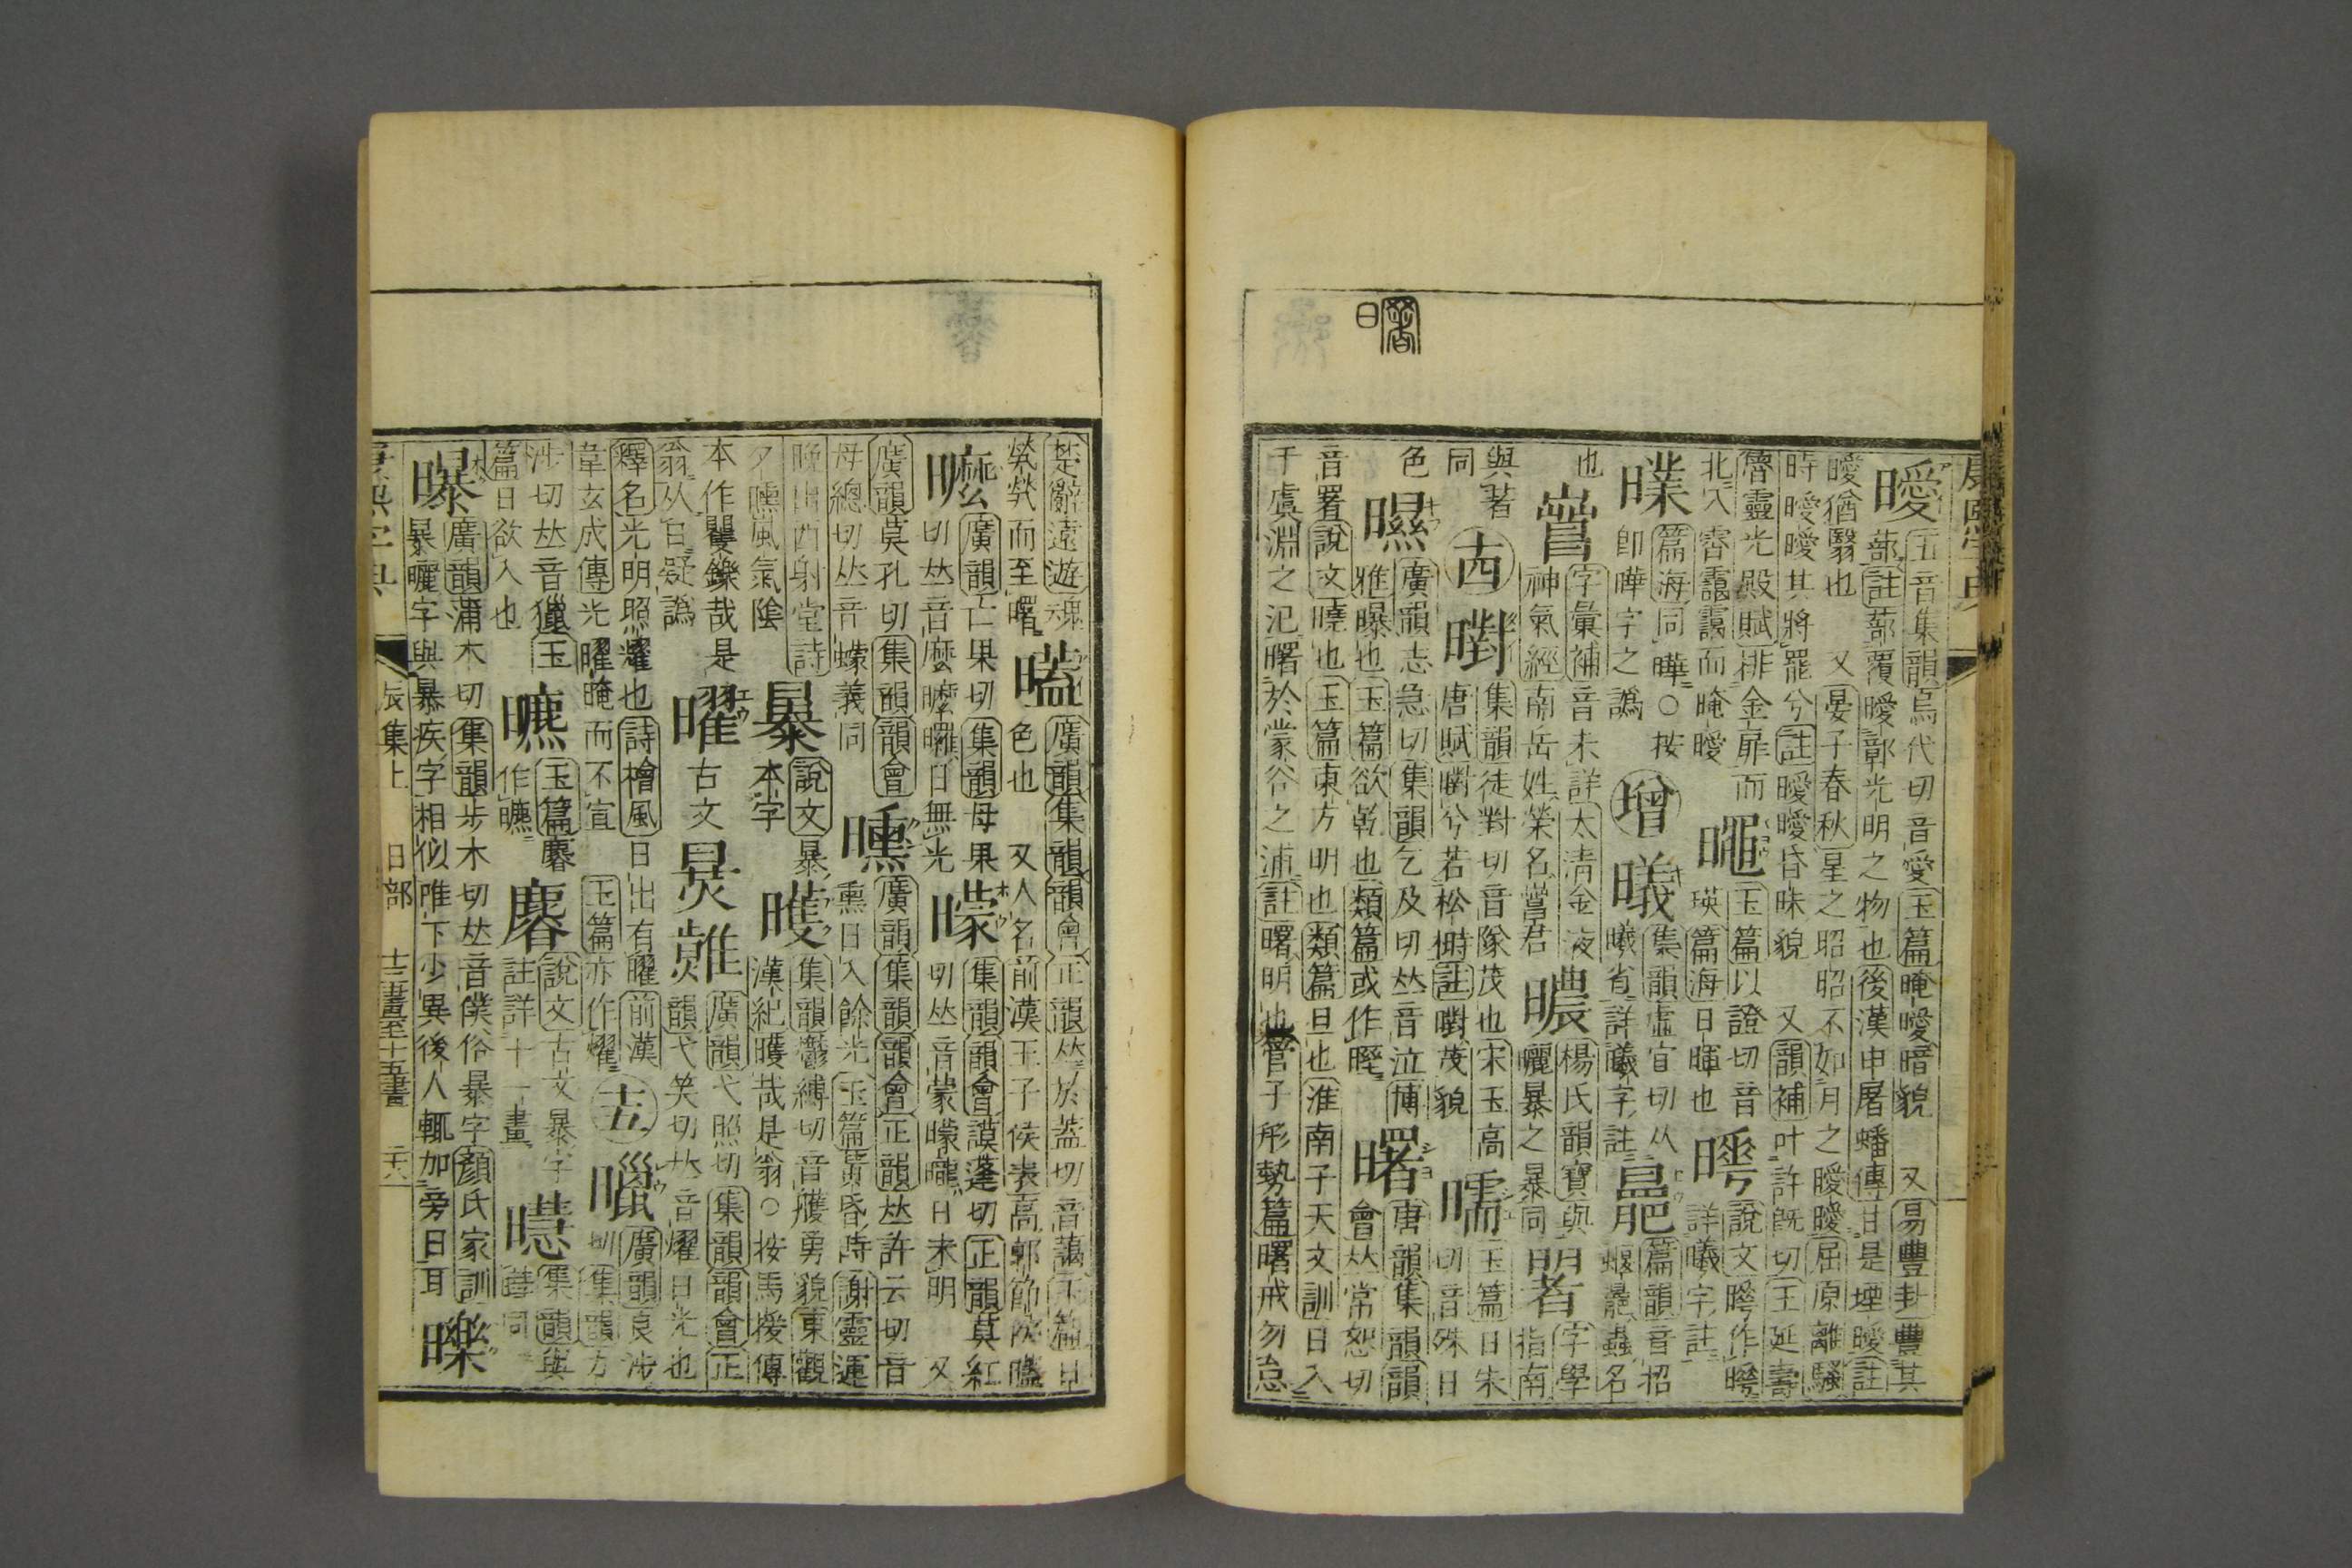 康熙字典
曙
曖 五音集韻烏代切音愛玉篇晻曖暗貌 又易豐卦豐其
蔀註蔀覆曖鄣光明之物也後漢申屠蟠傳甘是堙曖註
曖猶翳也 又晏子春秋星之昭昭不如月之曖曖屈原離騷
時曖曖其將罷兮註曖曖昏昧貌 又韻補叶許旣切王延壽
魯靈光殿賦排金扉而
北入霄靄靄而晻曖
玉篇以證切音
瑛篇海日暉也
說文
詳曦字註
篇海同曄○按
即曄字之譌
增
集韻虛宜切从
曦省詳曦字註
篇韻音招
蝘鼂蟲名
也
字彙補音未詳太淸金液
神氣經南岳姓榮名嘗君
楊氏韻寶與
曬暴之暴同
字學
指南
與著
同
十四
㬣 集韻徒對切音隊茂也宋玉高
唐賦㬣兮若松榯註㬣茂貌
曘 玉篇日朱
切音殊日
色
㬤 廣韻志急切集韻乞及切𠀤音泣博
雅曝也玉篇欲乾也類篇或作
曙 唐韻集韻韻
會𠀤常恕切
音署說文曉也玉篇東方明也類篇旦也淮南子天文訓日入
于虞淵之汜曙於蒙谷之浦註曙明也管子形勢篇曙戒勿怠
楚辭遠遊魂
煢煢而至曙
廣韻集韻韻會正韻𠀤於蓋切音藹玉篇日
色也 又人名前漢王子侯表高郭節侯
廣韻亡果切集韻母果
切𠀤音麽 日無光
曚 集韻韻會謨蓬切正韻莫紅
切𠀤音蒙曚曨日未明 又
廣韻莫孔切集韻韻會
母總切𠀤音蠓義同
曛 廣韻集韻韻會正韻𠀤許云切音
熏日入餘光玉篇黃昏時謝靈運
晚出西射堂詩
夕曛風氣陰
㬥 說文暴
本字
集韻鬱縛切音雘勇貌東觀
漢紀 哉是翁○按馬援傳
本作矍鑠哉是
翁从白疑譌
曜 古文
廣韻弋照切集韻韻會正
韻弋笑切𠀤音燿日光也
釋名光明照耀也詩檜風日出有曜前漢
韋玄成傳光曜晻而不宣 玉篇亦作燿
十五
廣韻良涉
切集韻力
涉切𠀤音獵玉
篇日欲入也
玉篇
作
說文古文暴字
註詳十一畫
集韻與
同
曝 廣韻蒲木切集韻步木切𠀤音僕俗暴字顏氏家訓
暴曬字與暴疾字相似唯下少異後人輒加旁日耳
㬦
康熙字典 辰集上 日部 十三畫至十五畫 二六